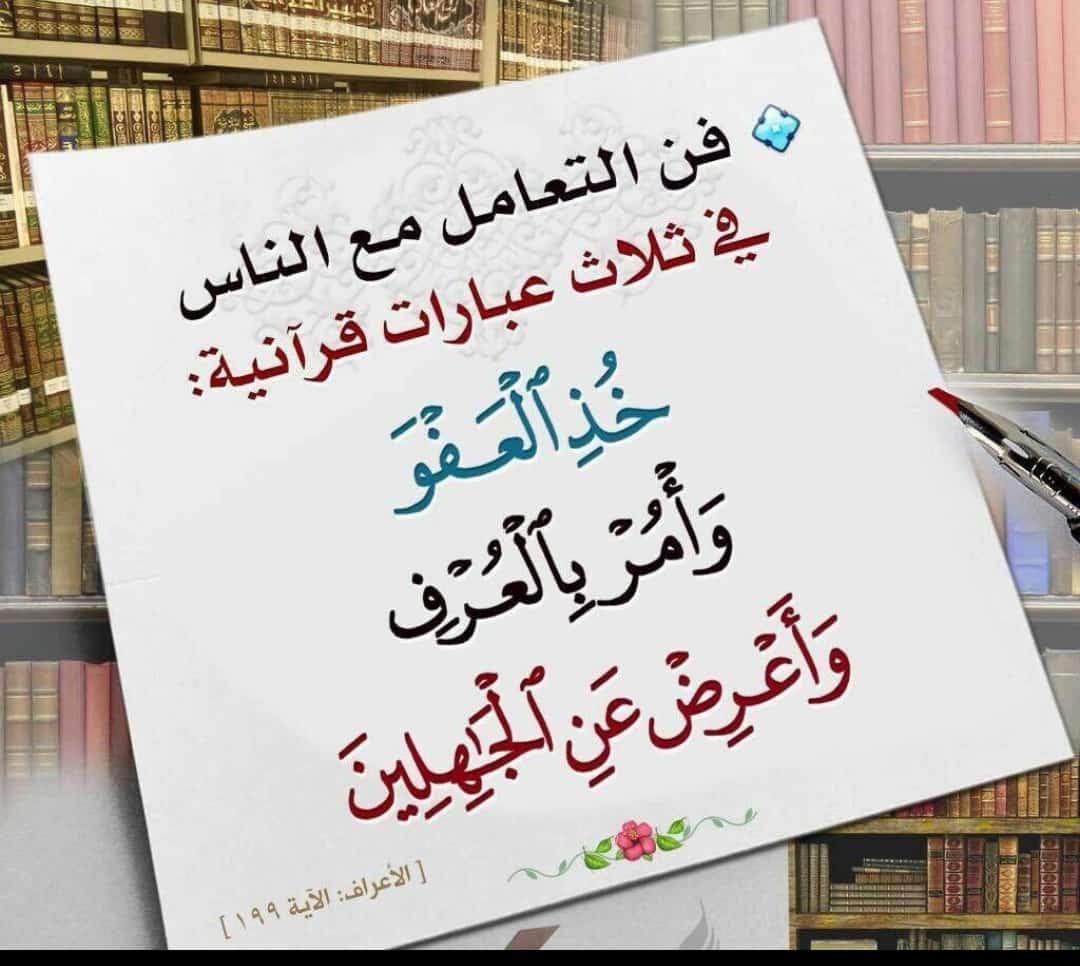 فن التعامل مع الناس
في ثلاث عبارات قرآنية:
خُذِ ٱلْعَفْوَ
وَأْمُرْ بِٱلْعُرْفِ
وَأَعْرِضْ عَنِ ٱلْجَٰهِلِينَ
[ الأعراف: الآية ١٩٩ ]